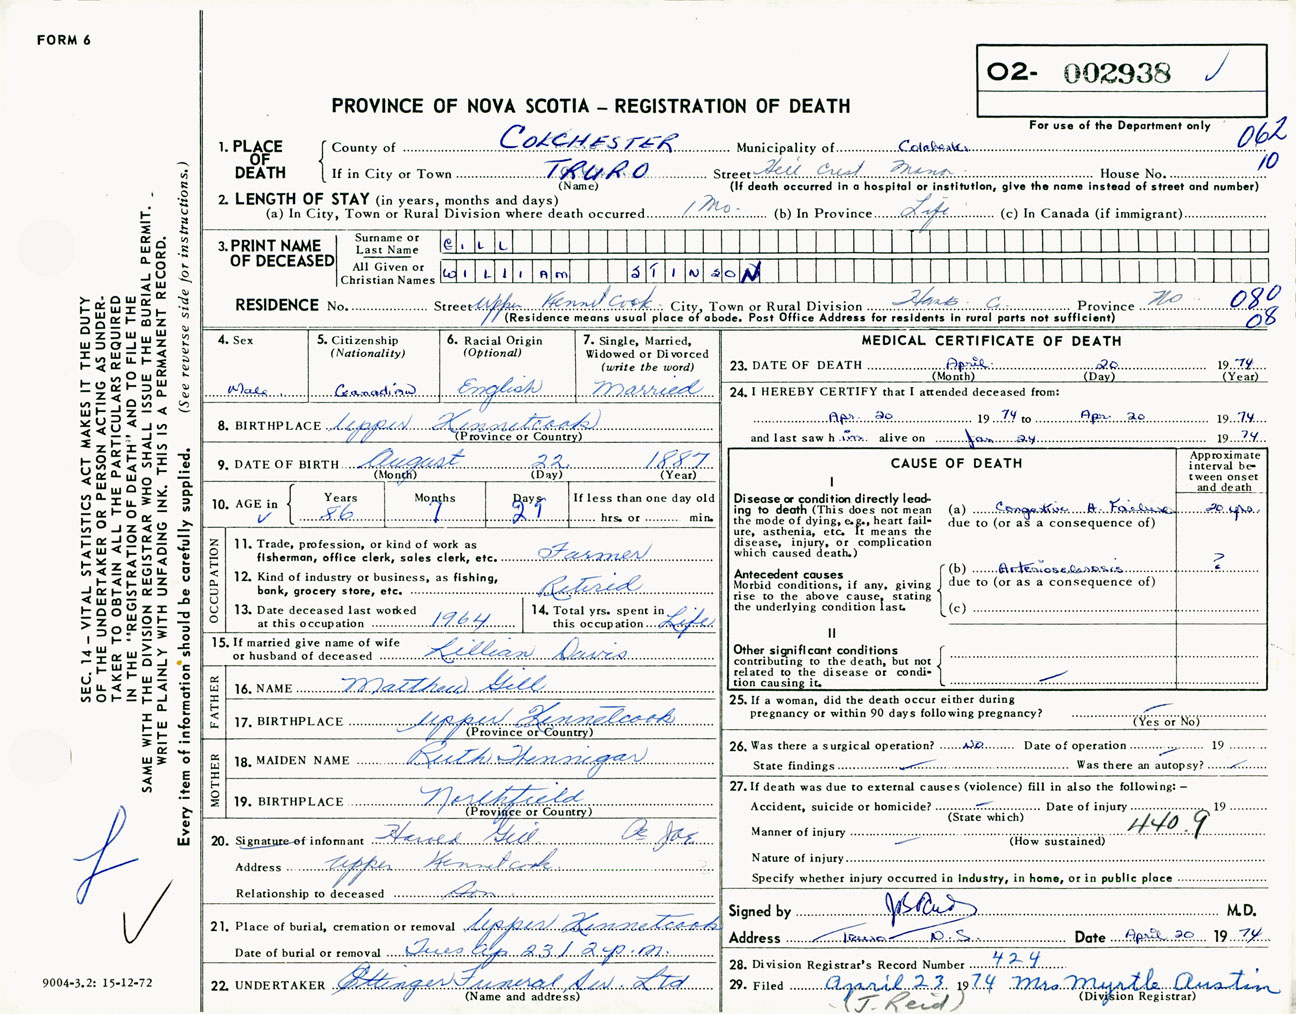 FORM 6
02- 002938 ✓
For use of the Department only
PROVINCE OF NOVA SCOTIA – REGISTRATION OF DEATH
062
10
1. PLACE OF DEATH
County of COLCHESTER Municipality of Colchester
If in City or Town TRURO Street Hill Crest Manor House No.
(Name) (If death occurred in a hospital or institution, give the name instead of street and number)
2. LENGTH OF STAY (in years, months and days)
(a) In City, Town or Rural Division where death occurred 1 Mo. (b) In Province Life (c) In Canada (if immigrant)
3. PRINT NAME OF DECEASED
Surname or Last Name GILL
All Given or Christian Names WILLIAM STINSON
RESIDENCE No. Street Upper Kennetcook City, Town or Rural Division Hants Co. Province NS 080
(Residence means usual place of abode. Post Office Address for residents in rural parts not sufficient) 08
4. Sex Male
5. Citizenship (Nationality) Canadian
6. Racial Origin (Optional) English
7. Single, Married, Widowed or Divorced (write the word) Married
8. BIRTHPLACE Upper Kennetcook
(Province or Country)
9. DATE OF BIRTH August 22 1887
(Month) (Day) (Year)
10. AGE in Years 86 Months 7 Days 29 If less than one day old hrs. or min.
OCCUPATION
11. Trade, profession, or kind of work as fisherman, office clerk, sales clerk, etc. Farmer
12. Kind of industry or business, as fishing, bank, grocery store, etc. Retired
13. Date deceased last worked at this occupation 1964
14. Total yrs. spent in this occupation Life
15. If married give name of wife or husband of deceased Lillian Davis
FATHER
16. NAME Matthew Gill
17. BIRTHPLACE Upper Kennetcook
(Province or Country)
MOTHER
18. MAIDEN NAME Ruth Hennigar
19. BIRTHPLACE Northfield
(Province or Country)
20. Signature of informant Harold Gill
Address Upper Kennetcook
Relationship to deceased Son
21. Place of burial, cremation or removal Upper Kennetcook
Date of burial or removal Tues Ap 23 / 2 p.m.
22. UNDERTAKER Ettinger Funeral Ser. Ltd
(Name and address)
MEDICAL CERTIFICATE OF DEATH
23. DATE OF DEATH April 20 1974
(Month) (Day) (Year)
24. I HEREBY CERTIFY that I attended deceased from:
Apr. 20 1974 to Apr 20 1974
and last saw him alive on Jan 24 1974
CAUSE OF DEATH
Approximate interval between onset and death
I
Disease or condition directly leading to death (This does not mean the mode of dying, e.g., heart failure, asthenia, etc. It means the disease, injury, or complication which caused death.)
(a) Congestive H. Failure 20 yrs.
due to (or as a consequence of)
Antecedent causes
Morbid conditions, if any, giving rise to the above cause, stating the underlying condition last.
(b) Arteriosclerosis ?
due to (or as a consequence of)
(c)
II
Other significant conditions contributing to the death, but not related to the disease or condition causing it.
25. If a woman, did the death occur either during pregnancy or within 90 days following pregnancy?
(Yes or No)
26. Was there a surgical operation? No Date of operation 19
State findings Was there an autopsy?
27. If death was due to external causes (violence) fill in also the following: –
Accident, suicide or homicide? Date of injury 19
(State which)
440.9
Manner of injury
(How sustained)
Nature of injury
Specify whether injury occurred in industry, in home, or in public place
Signed by M.D.
Address Truro N.S. Date April 20 1974
28. Division Registrar's Record Number 424
29. Filed April 23 1974 Mrs Myrtle Austin
(Division Registrar)
(J. Reid)
SEC. 14 – VITAL STATISTICS ACT MAKES IT THE DUTY
OF THE UNDERTAKER OR PERSON ACTING AS UNDER-
TAKER TO OBTAIN ALL THE PARTICULARS REQUIRED
IN THE "REGISTRATION OF DEATH" AND TO FILE THE
SAME WITH THE DIVISION REGISTRAR WHO SHALL ISSUE THE BURIAL PERMIT.
WRITE PLAINLY WITH UNFADING INK. THIS IS A PERMANENT RECORD.
Every item of information should be carefully supplied. (See reverse side for instructions.)
9004-3.2: 15-12-72